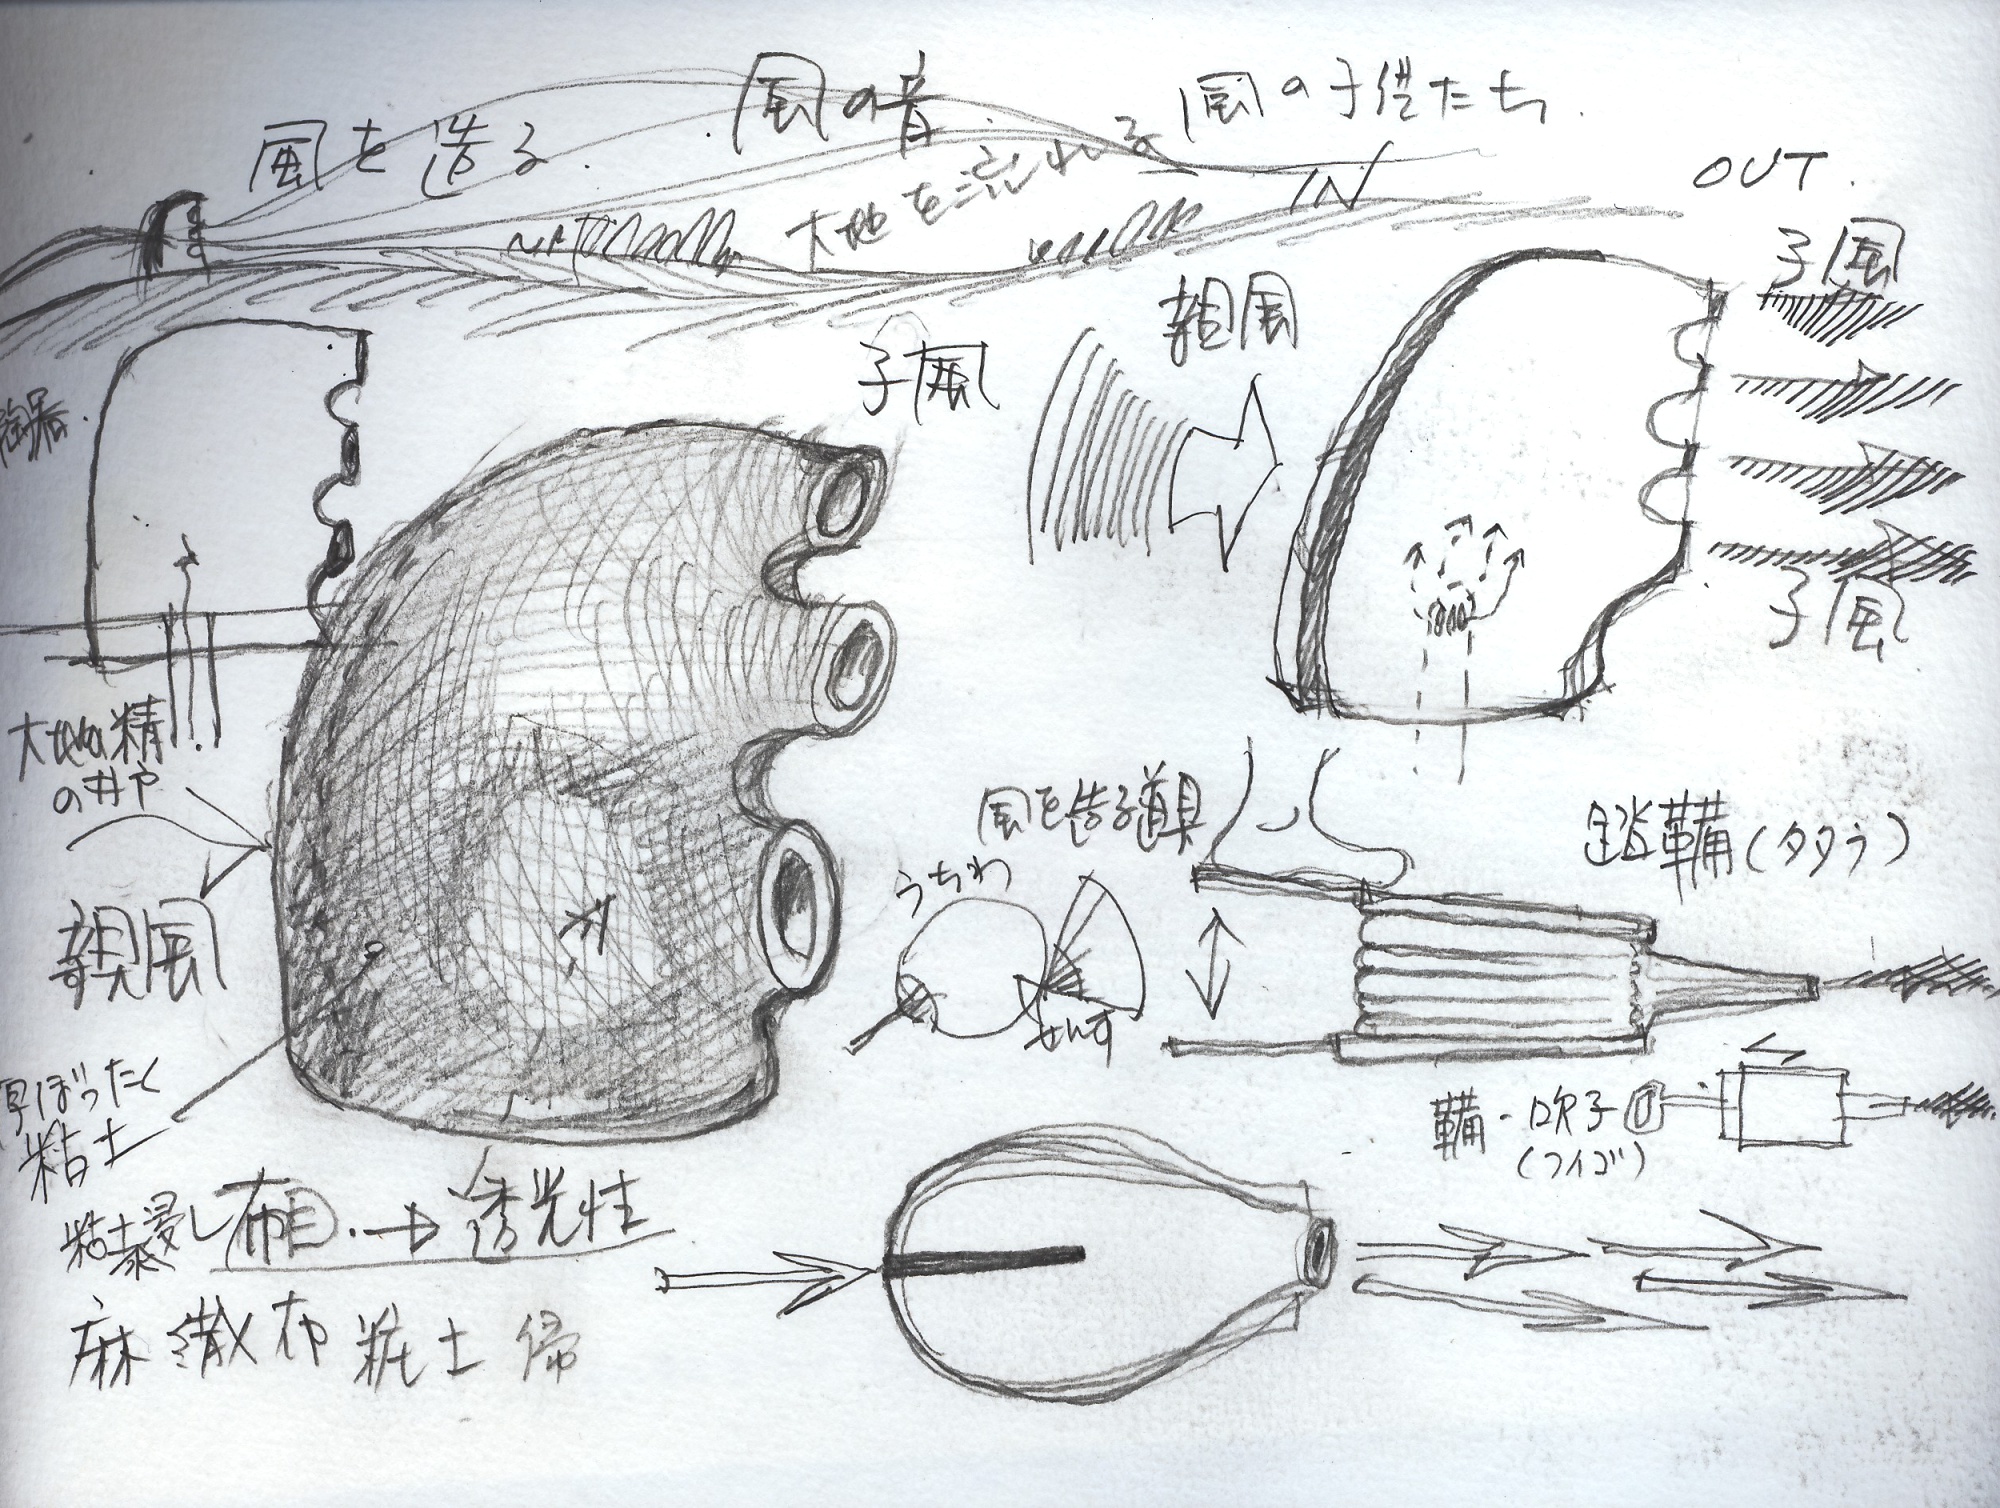 風を造る.
風の音.
風の子供たち.
大地を流れる
IN
OUT.
子風
親風
子風
陶器.
子風
大地の精
の井戸
風を造る道具
踏鞴(タタラ)
うちわ
せんす
親風
厚ぼったく
粘土
鞴・吹子
(フイゴ)
布目.→透光性
麻 繊 布 粘 土